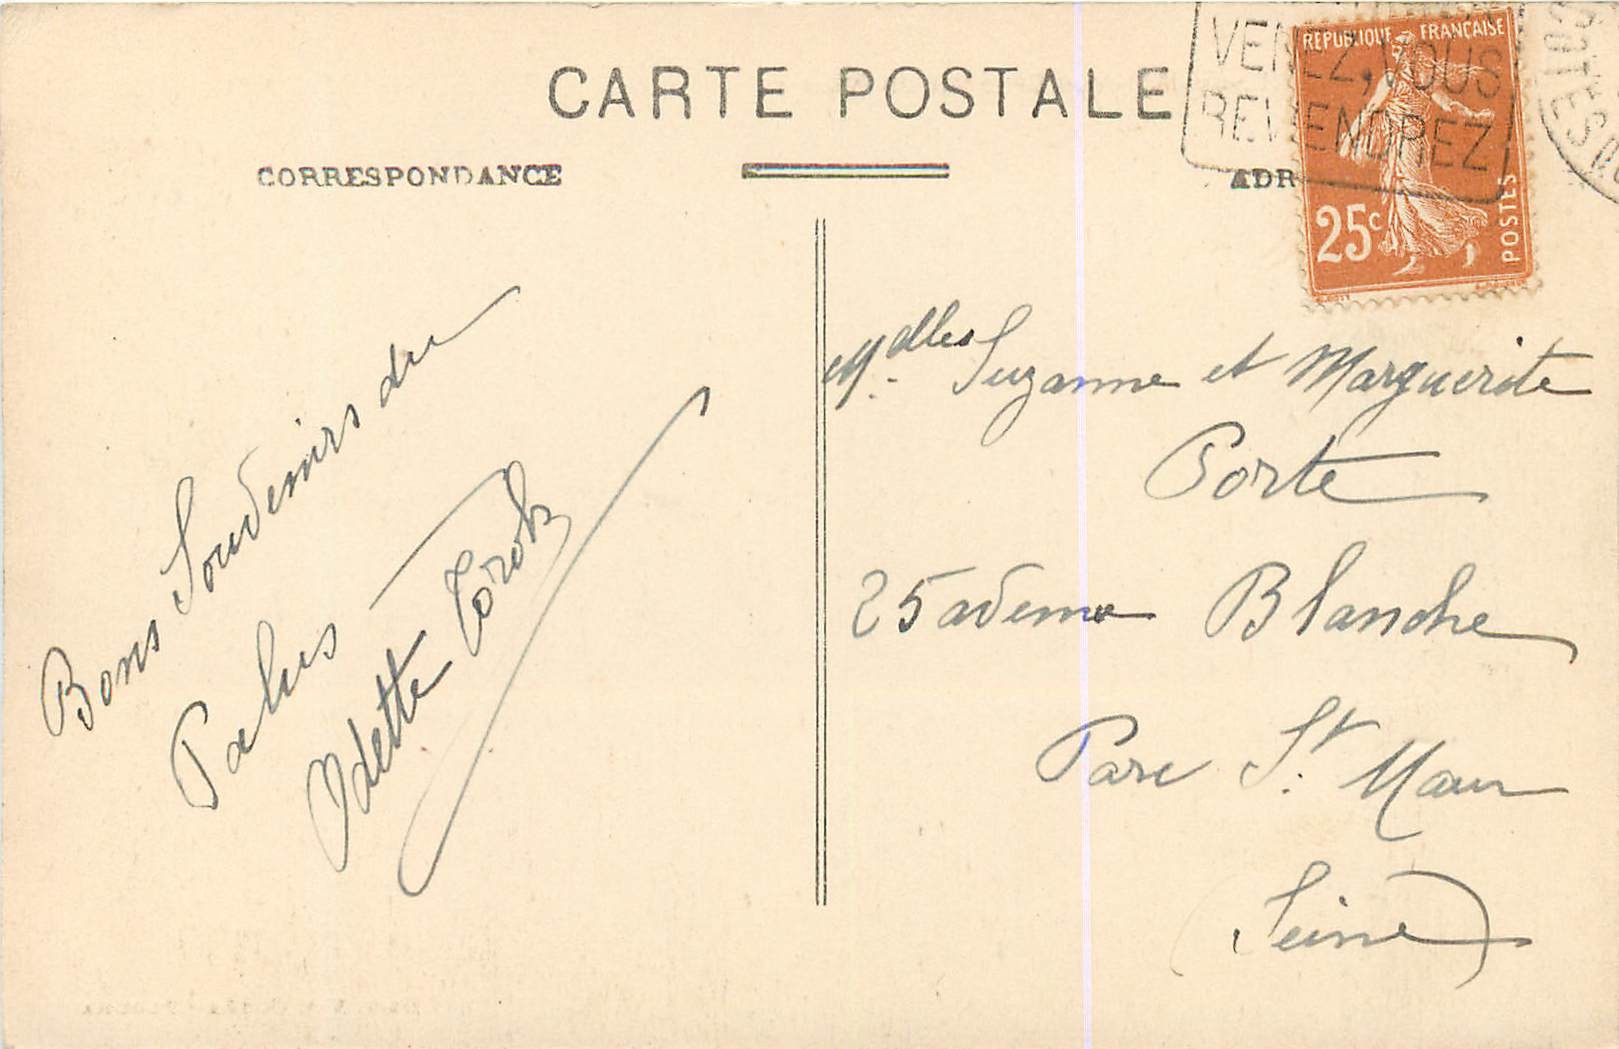 CARTE POSTALE
CORRESPONDANCE
ADR
VENEZ, VOUS
REVIENDREZ
REPUBLIQUE FRANÇAISE
25c
POSTES
COTES
Bons Souvenirs du
Palus
Odette
Mdlles Suzanne et Marguerite
Porte
25 avenue Blanche
Parc St Maur
(Seine)